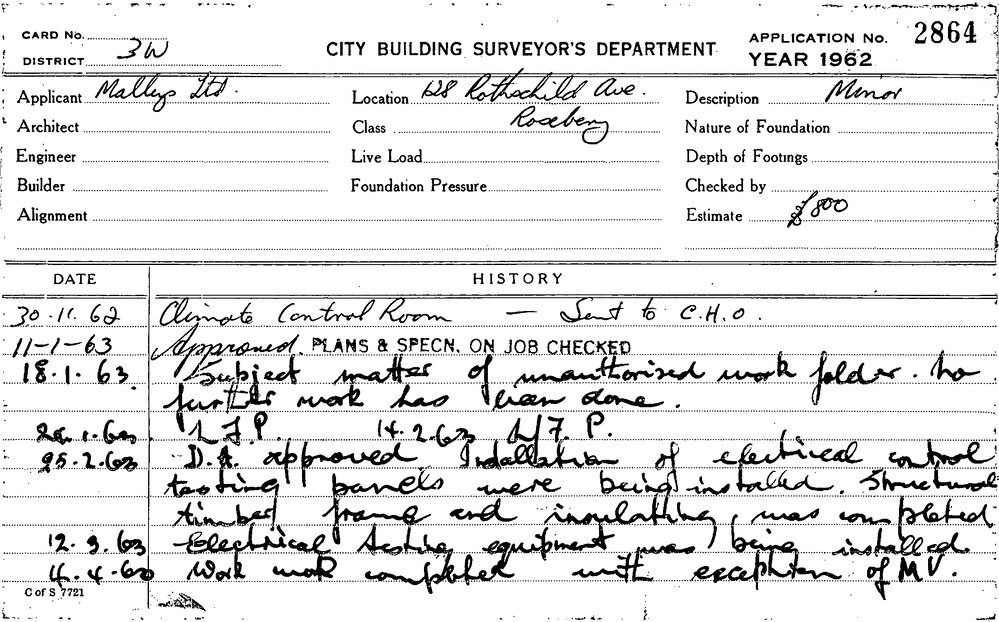 CARD No.
DISTRICT 3W
CITY BUILDING SURVEYOR'S DEPARTMENT
APPLICATION No. 2864
YEAR 1962
Applicant Malleys Ltd.
Location 128 Rothschild Ave.
Description Minor
Architect
Class Rosebery
Nature of Foundation
Engineer
Live Load
Depth of Footings
Builder
Foundation Pressure
Checked by
Alignment
Estimate £800
DATE HISTORY
30.11.62 Climate Control Room — Sent to C.H.O.
11-1-63 Approved. PLANS & SPECN. ON JOB CHECKED
18.1.63 Subject matter of unauthorised work folder. No
further work has been done.
.1.63 L/F.P. 14.2.63 L/F.P.
25.2.63 D.A. approved. Installation of electrical control
testing panels were being installed. Structural
timber frame and insulating, was completed
12.3.63 Electrical testing equipment was being installed
4.4.63 Work work completed with exception of MV.
C of S 7721